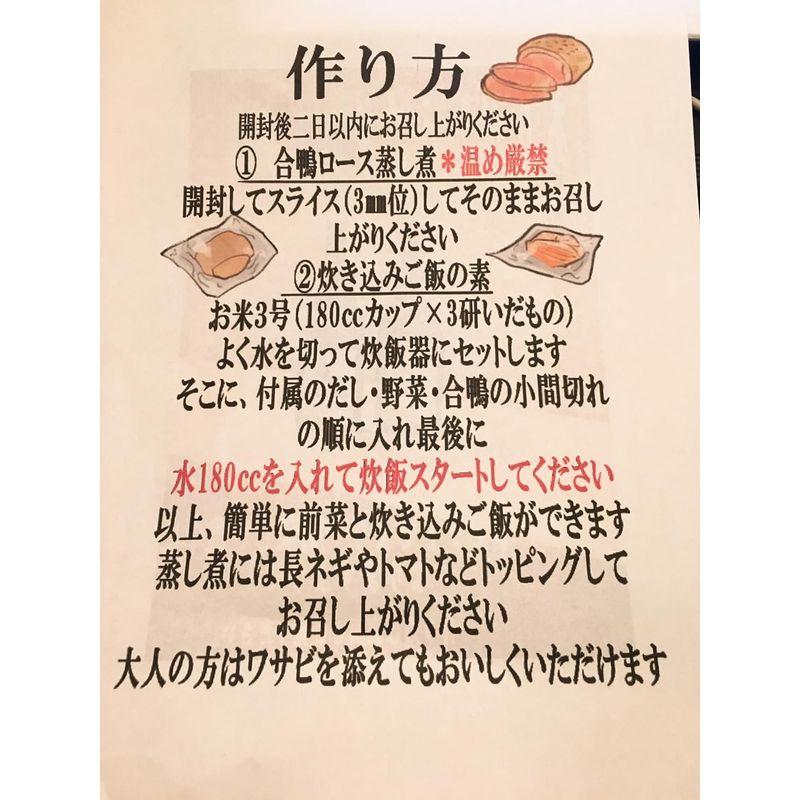 作り方
開封後二日以内にお召し上がりください
① 合鴨ロース蒸し煮＊温め厳禁
開封してスライス(3㎜位)してそのままお召し
上がりください
②炊き込みご飯の素
お米3号(180ccカップ×3研いだもの)
よく水を切って炊飯器にセットします
そこに、付属のだし・野菜・合鴨の小間切れ
の順に入れ最後に
水180ccを入れて炊飯スタートしてください
以上、簡単に前菜と炊き込みご飯ができます
蒸し煮には長ネギやトマトなどトッピングして
お召し上がりください
大人の方はワサビを添えてもおいしくいただけます